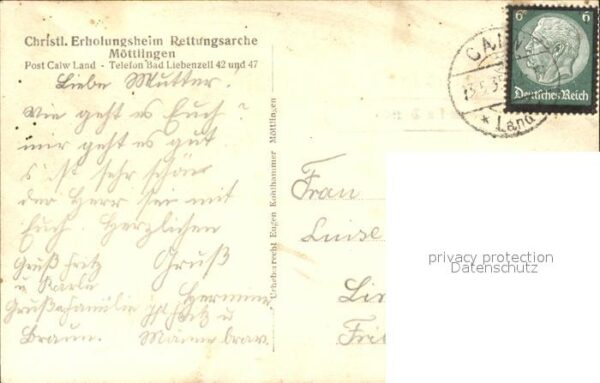 Christl. Erholungsheim Rettungsarche
Möttlingen
Post Calw Land - Telefon Bad Liebenzell 42 und 47
Liebe Mutter.
Wie geht es Euch?
mir geht es gut
es ist sehr schön
der Herr sei mit
Euch. Herzlichen
Gruß
Gruß Fritz
u Karle
Hermine
Gruß Familie
Braun.
Urheberrecht Eugen Kohlhammer Möttlingen
6 6
Deutsches Reich
CALW
* Land
Frau
Luise
Lin
Fri
privacy protection
Datenschutz